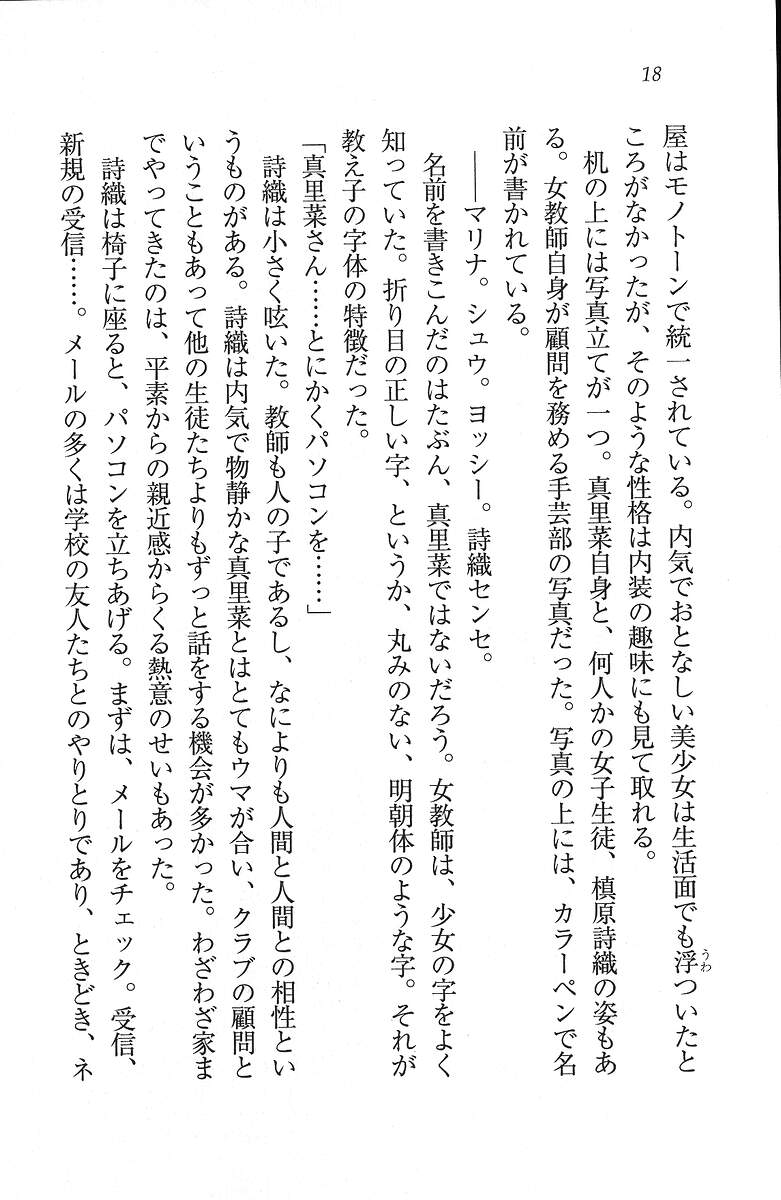 18
屋はモノトーンで統一されている。内気でおとなしい美少女は生活面でも浮ついたと
うわ
ころがなかったが、そのような性格は内装の趣味にも見て取れる。
机の上には写真立てが一つ。真里菜自身と、何人かの女子生徒、槙原詩織の姿もあ
る。女教師自身が顧問を務める手芸部の写真だった。写真の上には、カラーペンで名
前が書かれている。
――マリナ。シュウ。ヨッシー。詩織センセ。
名前を書きこんだのはたぶん、真里菜ではないだろう。女教師は、少女の字をよく
知っていた。折り目の正しい字、というか、丸みのない、明朝体のような字。それが
教え子の字体の特徴だった。
「真里菜さん……とにかくパソコンを……」
詩織は小さく呟いた。教師も人の子であるし、なによりも人間と人間との相性とい
うものがある。詩織は内気で物静かな真里菜とはとてもウマが合い、クラブの顧問と
いうこともあって他の生徒たちよりもずっと話をする機会が多かった。わざわざ家ま
でやってきたのは、平素からの親近感からくる熱意のせいもあった。
詩織は椅子に座ると、パソコンを立ちあげる。まずは、メールをチェック。受信、
新規の受信……。メールの多くは学校の友人たちとのやりとりであり、ときどき、ネ